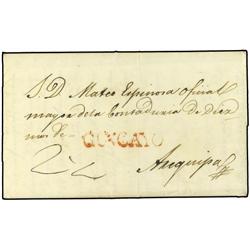 S. D. Mateo Espinosa oficial
mayor de la Contaduria de Diez
mos de
CONCAYO
Arequipa